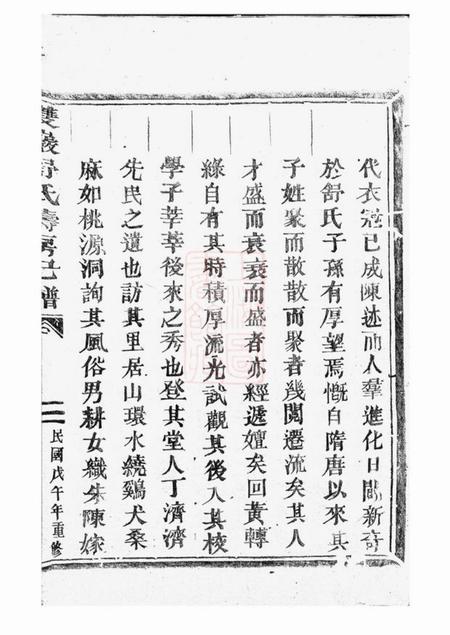 代衣冠已成陳迹而人羣進化日闢新奇
於舒氏子孫有厚望焉慨自隋唐以來其
子姓聚而散散而聚者幾閱遷流矣其人
才盛而衰衰而盛者亦經遞嬗矣回黃轉
綠自有其時積厚流光試觀其後入其校
學子莘莘後來之秀也登其堂人丁濟濟
先民之遺也訪其里居山環水繞鷄犬桑
麻如桃源洞詢其風俗男耕女織朱陳嫁
雙巖舒氏壽房己譜
二
民國戊午年重修